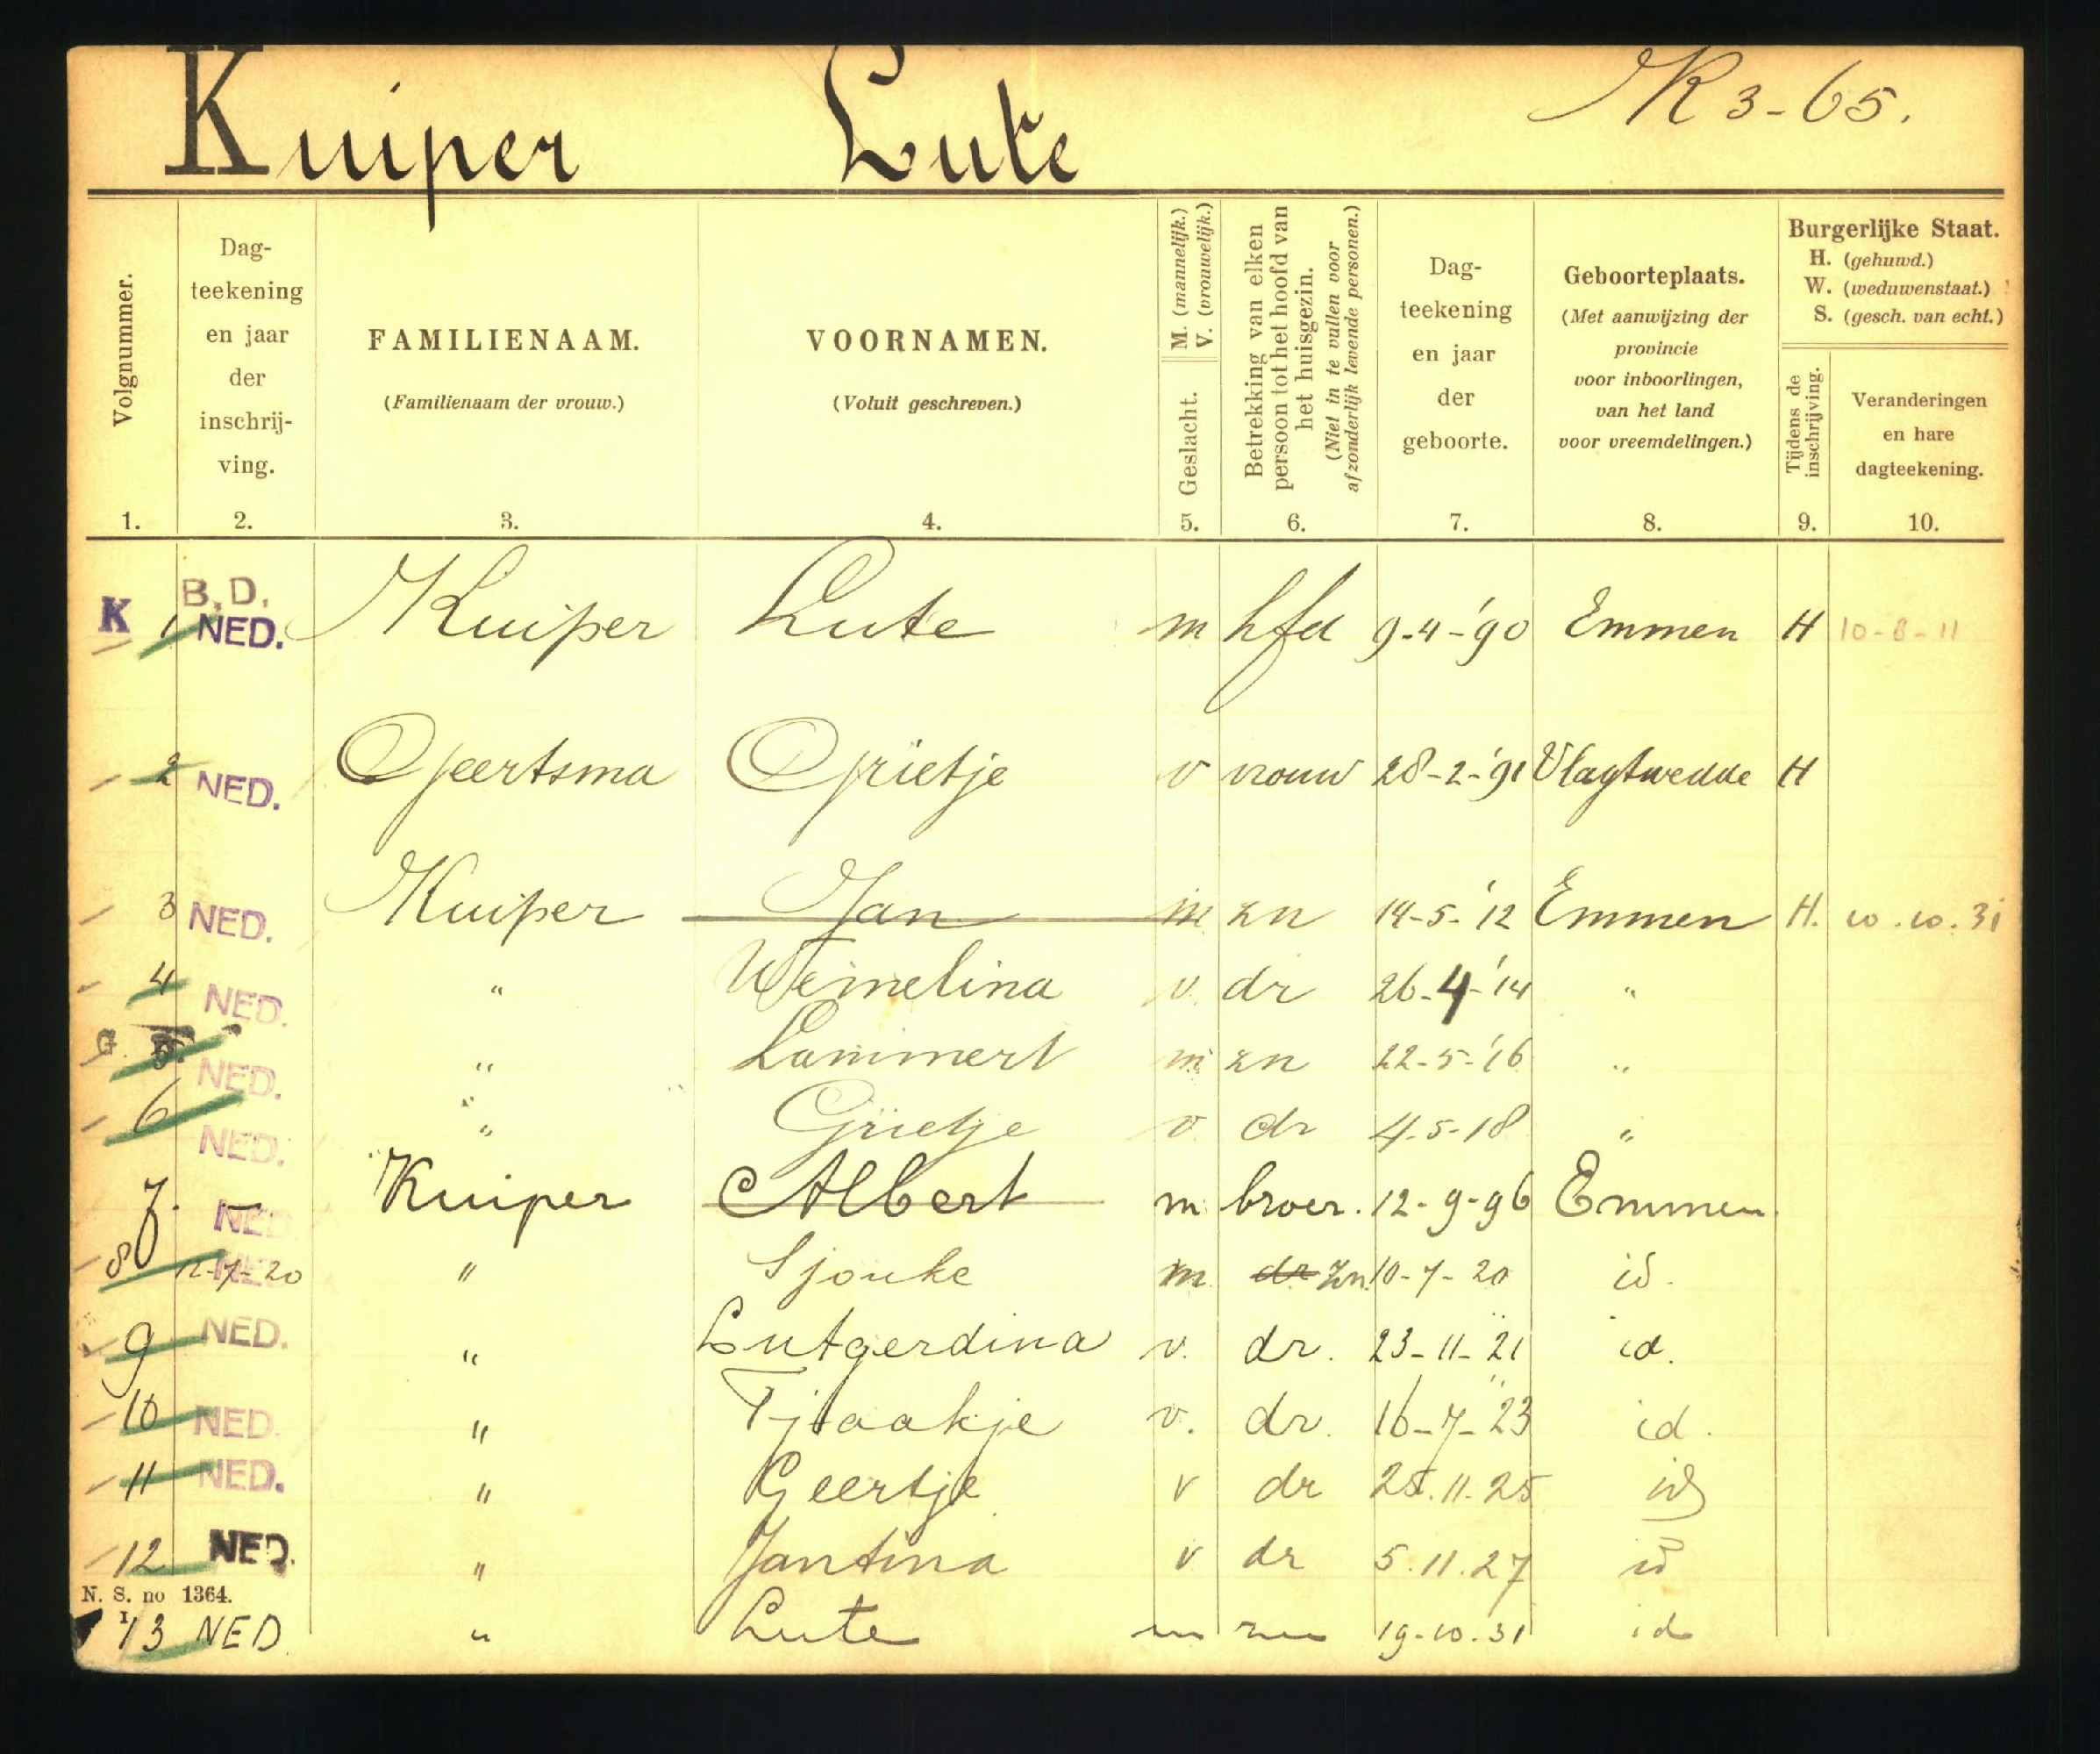 Kuiper Lute K 3-65.
Volgnummer.
1.
Dag-
teekening
en jaar
der
inschrij-
ving.
2.
FAMILIENAAM.
(Familienaam der vrouw.)
3.
VOORNAMEN.
(Voluit geschreven.)
4.
M. (mannelijk.)
V. (vrouwelijk.)
Geslacht.
5.
Betrekking van elken
persoon tot het hoofd van
het huisgezin.
(Niet in te vullen voor
afzonderlijk levende personen.)
6.
Dag-
teekening
en jaar
der
geboorte.
7.
Geboorteplaats.
(Met aanwijzing der
provincie
voor inboorlingen,
van het land
voor vreemdelingen.)
8.
Burgerlijke Staat.
H. (gehuwd.)
W. (weduwenstaat.)
S. (gesch. van echt.)
Tijdens de
inschrijving.
9.
Veranderingen
en hare
dagteekening.
10.
B.D.
K 1 NED. Kuiper Lute m hfd 9-4-'90 Emmen H 10-8-11
2 NED. Geertsma Grietje v vrouw 28-2-'91 Vlagtwedde H
3 NED. Kuiper Jan m zn 14-5-'12 Emmen H. 10.10.31
4 NED. " Wemelina v. dr 26-4-'14 "
G. 5. NED. " Lammert m zn 22-5-'16 "
6 NED. " Grietje v dr 4-5-18 "
7. NED Kuiper Albert m broer. 12-9-96 Emmen.
8 12-7-20 NED " Sjouke m dr zn. 10-7-20 id.
9 NED. " Lutgerdina v. dr. 23-11-21 id.
10 NED. " Tjaakje v. dr. 16-7-23 id.
11 NED. " Geertje v dr 25.11.25 id
12 NED. " Jantina v dr 5.11.27 id
N. S. no 1364.
13 NED " Lute m zn 19-10-31 id